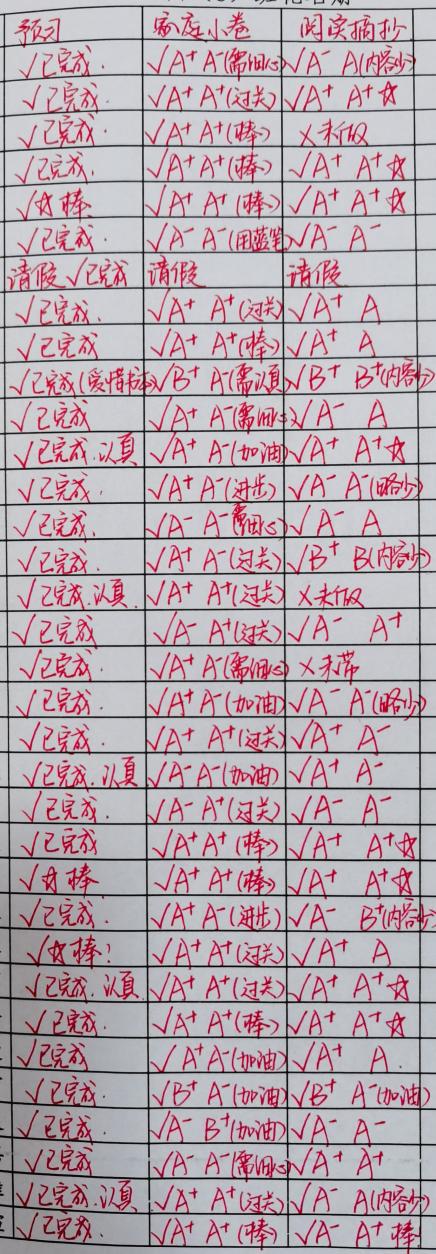 预习 家庭小卷 阅读摘抄
√已完成. √A⁺ A⁻(需细心) √A⁻ A(内容少)
√已完成. √A⁺ A⁺(过关) √A⁺ A⁺☆
√已完成. √A⁺ A⁺(棒) ×未做
√已完成. √A⁺ A⁺(棒) √A⁺ A⁺☆
√☆棒. √A⁺ A⁺(棒) √A⁺ A⁺☆
√已完成. √A⁻ A⁻(用蓝笔) √A⁻ A⁻
请假√已完成 请假 请假
√已完成. √A⁺ A⁺(过关) √A⁺ A
√已完成 √A⁺ A⁺(棒) √A⁺ A
√已完成(爱惜书本) √B⁺ A⁻(需认真) √B⁺ B⁺(内容少)
√已完成 √A⁺ A⁻(需细心) √A⁻ A
√已完成.认真 √A⁺ A⁻(加油) √A⁺ A⁺☆
√已完成. √A⁺ A⁻(进步) √A⁻ A⁻(略少)
√已完成. √A⁻ A⁻(需细心) √A⁻ A
√已完成. √A⁺ A⁻(过关) √B⁺ B(内容少)
√已完成.认真. √A⁺ A⁺(过关) ×未做
√已完成 √A⁻ A⁺(过关) √A⁻ A⁺
√已完成. √A⁺ A⁻(需细心) ×未带
√已完成. √A⁺ A⁻(加油) √A⁻ A⁻(略少)
√已完成. √A⁺ A⁺(过关) √A⁺ A⁻
√已完成.认真 √A⁻ A⁻(加油) √A⁺ A⁻
√已完成. √A⁻ A⁺(过关) √A⁻ A⁻
√已完成 √A⁺ A⁺(棒) √A⁺ A⁺☆
√☆棒 √A⁺ A⁺(棒) √A⁺ A⁺☆
√已完成. √A⁺ A⁻(进步) √A⁻ B⁺(内容少)
√☆棒! √A⁺ A⁺(过关) √A⁺ A
√已完成.认真 √A⁺ A⁺(过关) √A⁺ A⁺☆
√已完成. √A⁺ A⁺(棒) √A⁺ A⁺☆
√已完成 √A⁺ A⁻(加油) √A⁺ A.
√已完成. √B⁺ A⁻(加油) √B⁺ A⁻(加油)
√已完成. √A⁻ B⁺(加油) √A⁻ A⁻
√已完成 √A⁻ A⁻(需细心) √A⁺ A⁺
√已完成.认真 √A⁺ A⁺(过关) √A⁻ A(内容少)
√已完成. √A⁺ A⁺(棒) √A⁻ A⁺棒